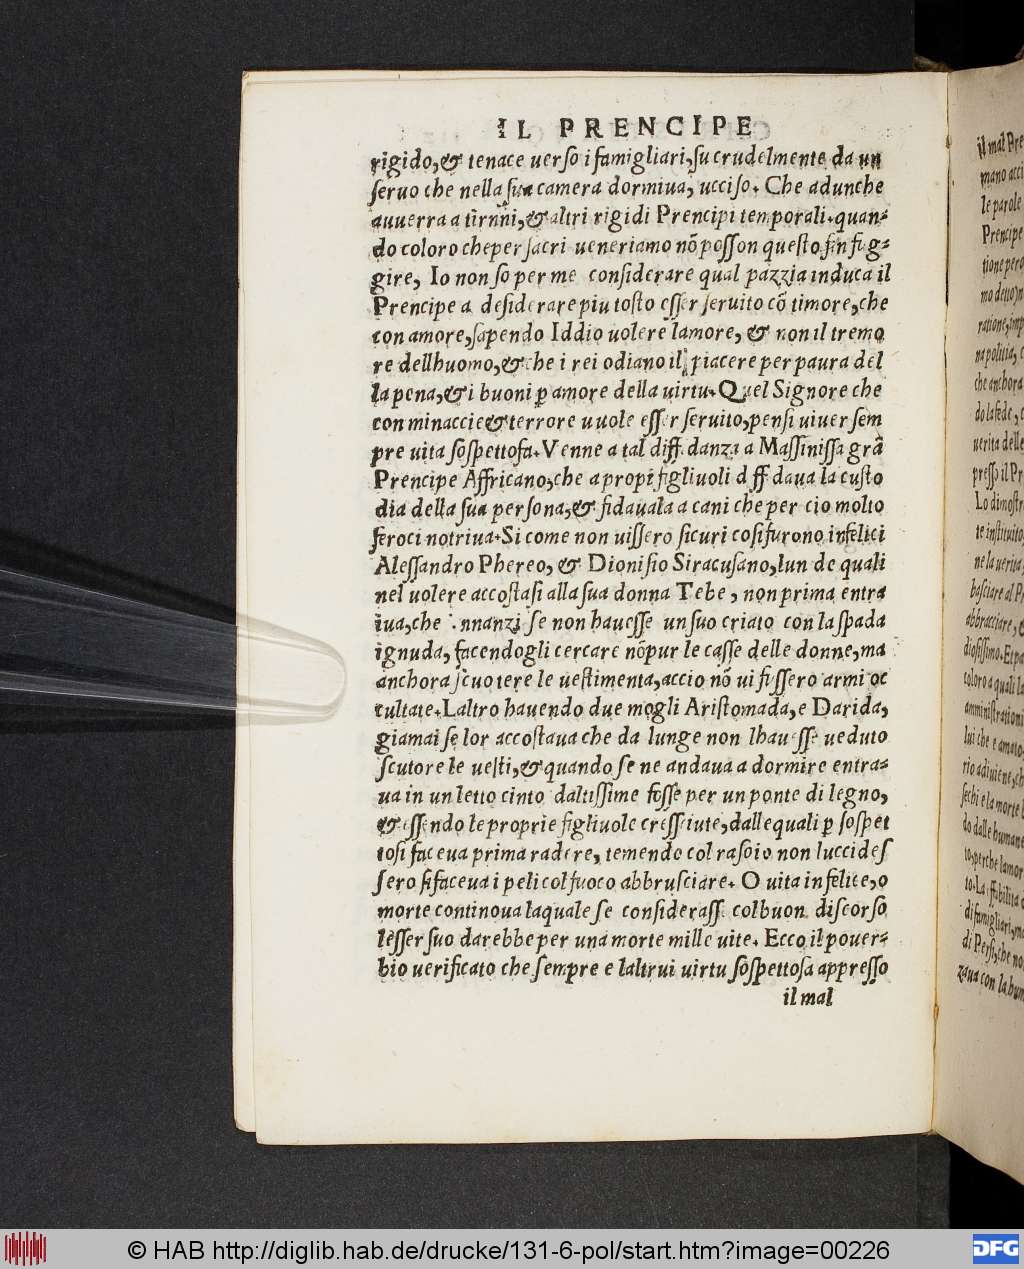 IL PRENCIPE
rigido, & tenace uerso i famigliari, su crudelmente da un
seruo che nella sua camera dormiua, ucciso. Che adunche
auuerra a tirnni, & altri rigidi Prencipi temporali. quan-
do coloro che per sacri ueneriamo nõ posson questo fin fug-
gire, Io non so per me considerare qual pazzia induca il
Prencipe a desiderare piu tosto esser seruito cõ timore, che
con amore, sapendo Iddio uolere lamore, & non il tremo
re dellhuomo, & che i rei odiano il piacere per paura del
la pena, & i buoni p amore della uirtu. Quel Signore che
con minaccie & terrore uuole esser seruito, pensi uiuer sem
pre uita sospettosa. Venne a tal diff danza Massinissa grã
Prencipe Affricano, che a propi figliuoli d ff daua la custo
dia della sua persona, & fidauala a cani che per cio molto
feroci notriua. Si come non uissero sicuri cosi furono infelici
Alessandro Phereo, & Dionisio Siracusano, lun de quali
nel uolere accostasi alla sua donna Tebe, non prima entra
iua, che .nnanzi se non hauesse un suo criato con la spada
ignuda, facendogli cercare nõ pur le casse delle donne, ma
anchora scuotere le uestimenta, accio nõ ui fussero armi oc
cultate. Laltro hauendo due mogli Aristomada, e Darida,
giamai se lor accostaua che da lunge non lhauesse ueduto
scutore le uesti, & quando se ne andaua a dormire entra-
ua in un letto cinto daltissime fosse per un ponte di legno,
& essendo le proprie figliuole cresseiute, dalle quali p sospet
tosi faceua prima radere, temendo col rasoio non luccides
sero si faceua i peli col fuoco abbrusciare. O uita infelice, o
morte continoua laquale se considerass. col buon discorso
lesser suo darebbe per una morte mille uite. Ecco il pouer-
bio uerificato che sempre e laltrui uirtu sospettosa appresso
il mal
il mal Pre
mano acci
le parole
Prencipe
tione pero
mo detto
ratione, imp
na politia,
che anchora
do la fede,
uerita delle
presso il Pr
Lo dimostr
te instituito
ne la uerita
basciare al P
abbracciare,
diosissimo. Et pa
coloro a quali la
amministration
lui che e amato
rio adiuiene, ch
sechi e la morte
do dalle humane
to, perche lamor
to. La ffabilita
di famigliari, m
di Persi, che no
zaua con la hum
© HAB http://diglib.hab.de/drucke/131-6-pol/start.htm?image=00226
DFG